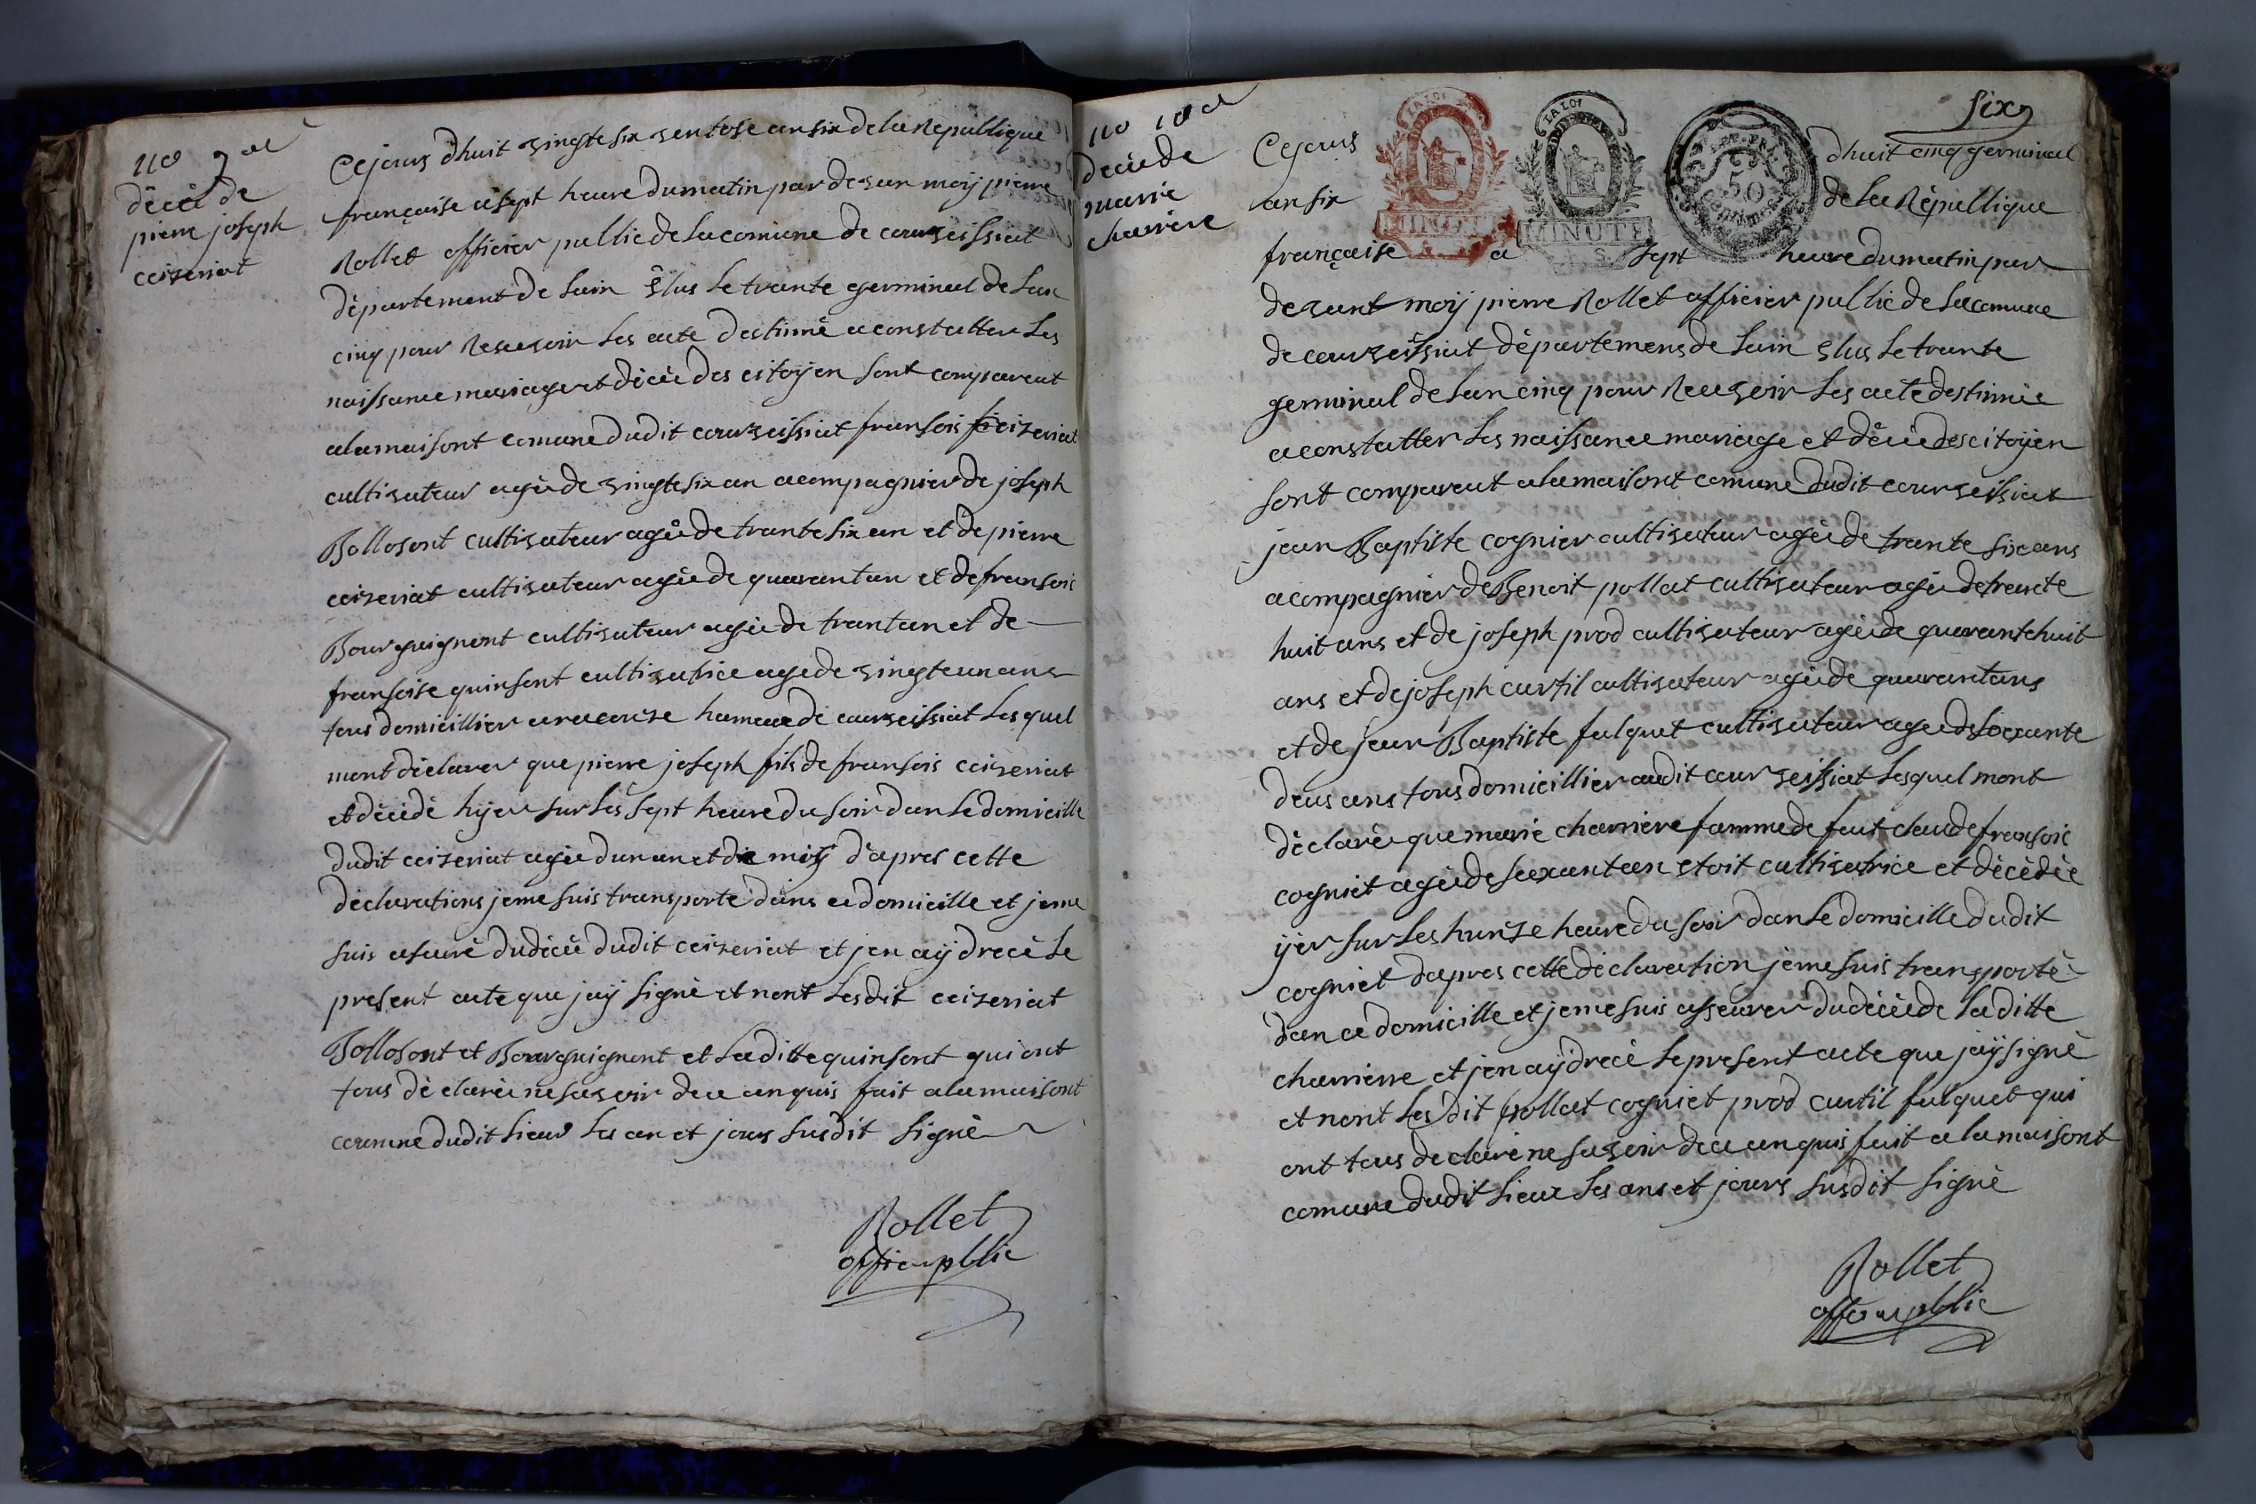 no 9
décè de
pierre joseph
ceizeriat
Cejours dhuit vingte six ventose an six de la Republique
française a sept heure du matin par devan moÿ pierre
Rollet officier pullic de la comune de courveissiat
département de lain élus le trante germinal de lan
cinq pour Resevoir les acte destinné a constatter les
naissance mariage et décè des citoÿen sont comparent
a la maisont comune dudit courveissiat fransois ceizeriat
cultivateur agée de vingte six an acompagnier de joseph
Bollosont cultivateur agée de trante six an et de pierre
ceizeriat cultivateur agée de quarantan et de fransois
Bourguignont cultivateur agée de trantan et de
fransoise quinsont cultivatrice age de vingte un ans
tous domicillier a racouze hameau de courveissiat lesquel
mont déclarer que pierre joseph fils de fransois ceizeriat
et décédé hÿer sur les sept heure du soir dan le domicille
dudit ceizeriat agée dun an et di miÿ d'apres cette
déclarations je me suis transporté dans ce domicille et je me
suis asuré du décè dudit ceizeriat et jen aÿ drecé le
present acte que jaÿ signé et nont lesdit ceizeriat
Bollosont et Bourguignont et la ditte quinsont qui ont
tous déclaré ne savoir de ce anquis fait a la maisont
comune dudit lieux les an et jours susdit signé
Rollet
offier pbllic
no 10
décè de
marie
charriere
six
LA LOI
LA LOI
MINUTE
MINUTE
50
Centimes
Cejours dhuit cinq germinal
an six de la Républlique
française a sept heure du matin par
devant moÿ pierre Rollet officier pullic de la comune
de courveissiat départemens de lain élus le trante
germinal de lan cinq pour Recevoir les acte destinnée
a constatter les naissance mariage et décè des citoÿen
sont comparent a la maisont comune dudit courveissiat
jean Baptiste cognier cultivateur agée de trante six ans
acompagnier de Benoit pollat cultivateur agée de trante
huit ans et de joseph prod cultivateur agée de quarante huit
ans et de joseph curtil cultivateur agée de quarantans
et de jean Baptiste fulquet cultivateur agée de soexante
deus ans tous domicillier audit courveissiat lesquel mont
déclaré que marie charriere famme de feut claude fransois
cogniet agée de soexantan etoit cultivatrice et décédée
ÿer sur les hunze heure du soir dan le domicille dudit
cogniet dapres cette déclaration je me suis transporté
dan ce domicille et je me suis asseurer du décè de laditte
charrierre et jen aÿ drecé le present acte que jaÿ signé
et nont lesdit pollat cogniet prod curtil fulquet qui
ont tous déclaré ne savoir de ce anquis fait a la maisont
comune dudit lieux les ans et jours susdit signé
Rollet